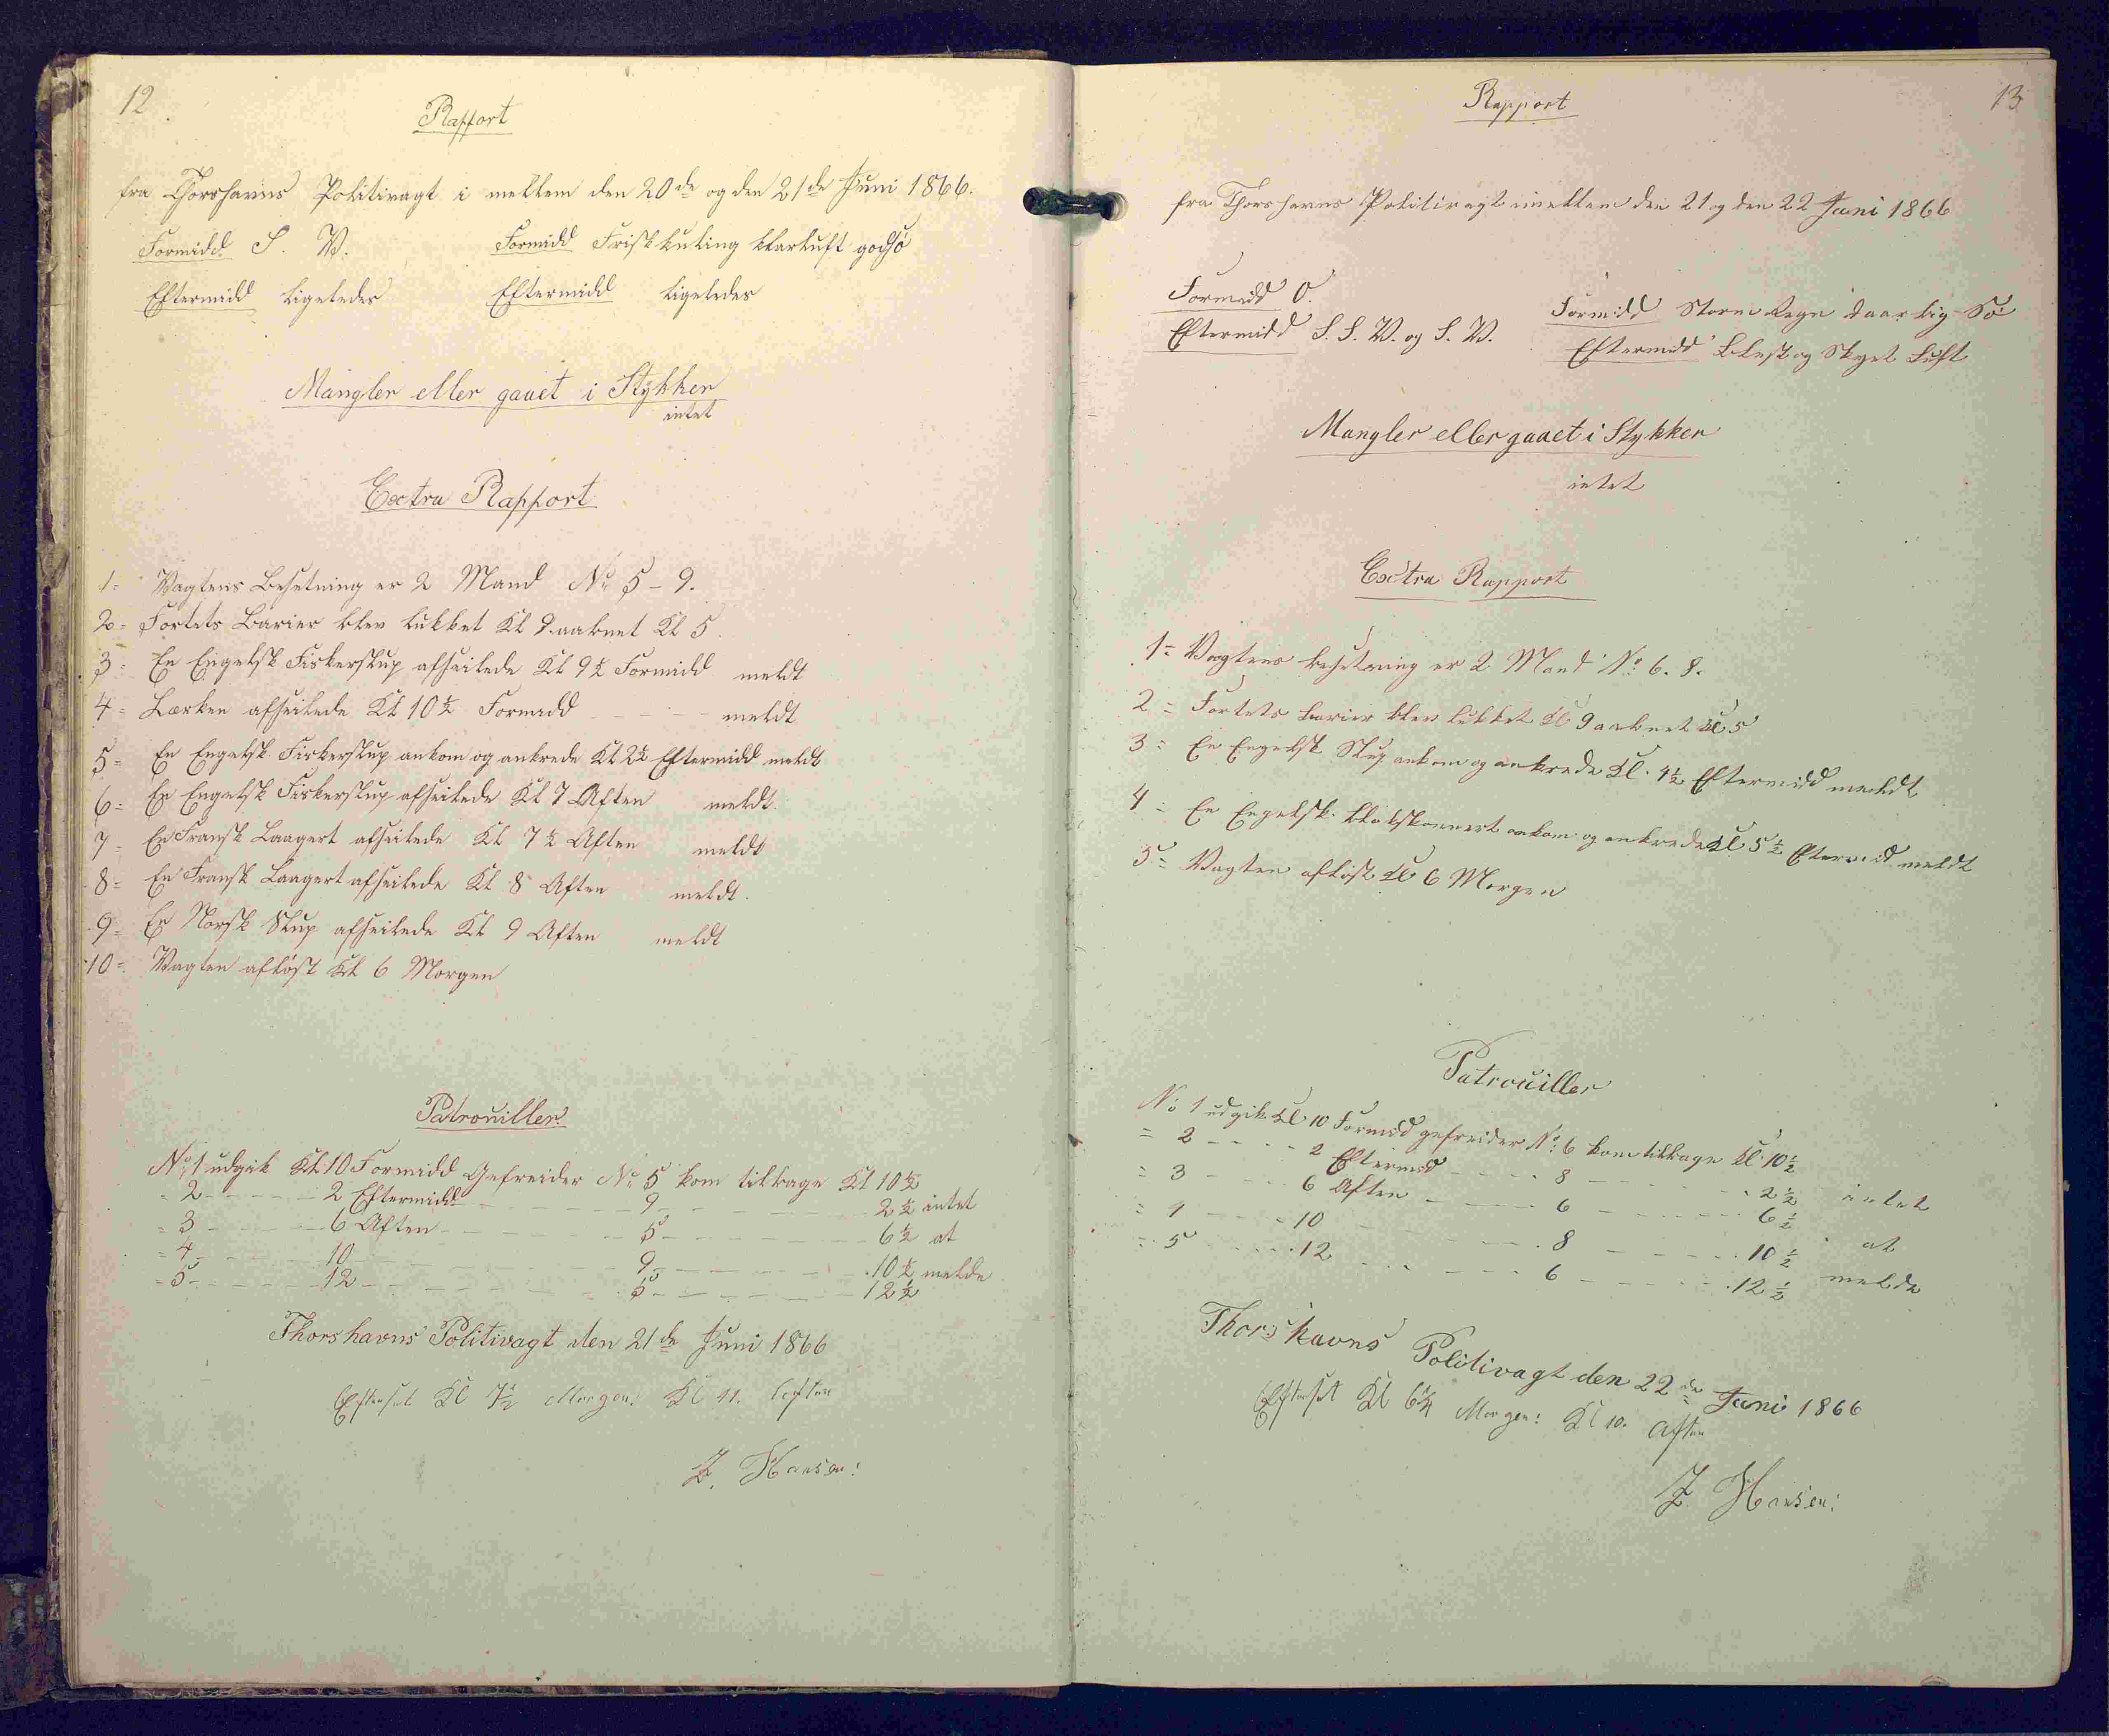 12
Rapport
fra Thorshavns Politivagt i mellem den 20de og den 21de Juni 1866.
Formidd S. W. Formidd Frisk Kuling klar Luft god Sö
Eftermidd ligeledes Eftermidd ligeledes
Mangler eller gaaet i Stykker
intet
Extra Rapport
1= Vagtens Besetning er 2 Mand No 5-9.
2= Fortets Barier blev lukket Kl 9 aabnet Kl 5.
3= En Engelsk Fiskerslup afseilede Kl 9½ Formidd meldt
4= Lærken afseilede Kl 10½ Formidd - - - meldt
5= En Engelsk Fiskerslup ankom og ankrede Kl 2½ Eftermidd meldt
6= En Engelsk Fiskerslup afseilede Kl 7 Aften meldt.
7= En Fransk Laagert afseilede Kl 7½ Aften meldt
8= En Fransk Laagert afseilede Kl 8 Aften meldt.
9= En Norsk Slup afseilede Kl 9 Aften meldt
10= Vagten aflöst Kl 6 Morgen
Patrouiller
No 1 udgik Kl 10 Formidd Gefreider No 5 kom tilbage Kl 10½
= 2 - - - 2 Eftermidd - - - 9 - - - 2½ intet
= 3 - - - 6 Aften - - - 5 - - - 6½ at
= 4 - - - 10 - - - 9 - - - 10½ melde
= 5 - - - 12 - - - 5 - - - 12½
Thorshavns Politivagt den 21de Juni 1866
Efterset Kl 7½ Morgen. Kl 11. Aften
Z. Hansen:
13
Rapport
fra Thorshavns Politivagt imellem den 21 og den 22 Juni 1866
Formidd O. Formidd Storm Regn daarlig Sö
Eftermidd S. S. W. og S. W. Eftermidd blest og Skyet Luft
Mangler eller gaaet i Stykker
intet
Extra Rapport
1= Vagtens besetning er 2 Mand No 6. 8.
2= Fortets barier blev lukket Kl 9 aabnet Kl 5
3= En Engelsk Slup ankom og ankrede Kl. 4½ Eftermidd meldt
4= En Engelsk ankom og ankrede Kl 5½ Eftermid meldt
5= Vagten aflöst Kl 6 Morgen
Patrouiller
No 1 udgik Kl 10 Formidd gefreider No 6 kom tilbage Kl 10½
= 2 - - - 2 Eftermid - - - 8 - - - 2½ intet
= 3 - - - 6 Aften - - - 6 - - - 6½
= 4 - - - 10 - - - 8 - - - 10½ at
= 5 - - - 12 - - - 6 - - - 12½ melde
Thorshavns Politivagt den 22de Juni 1866
Efterset Kl 6¼ Morgen: Kl 10. Aften
Z. Hansen: